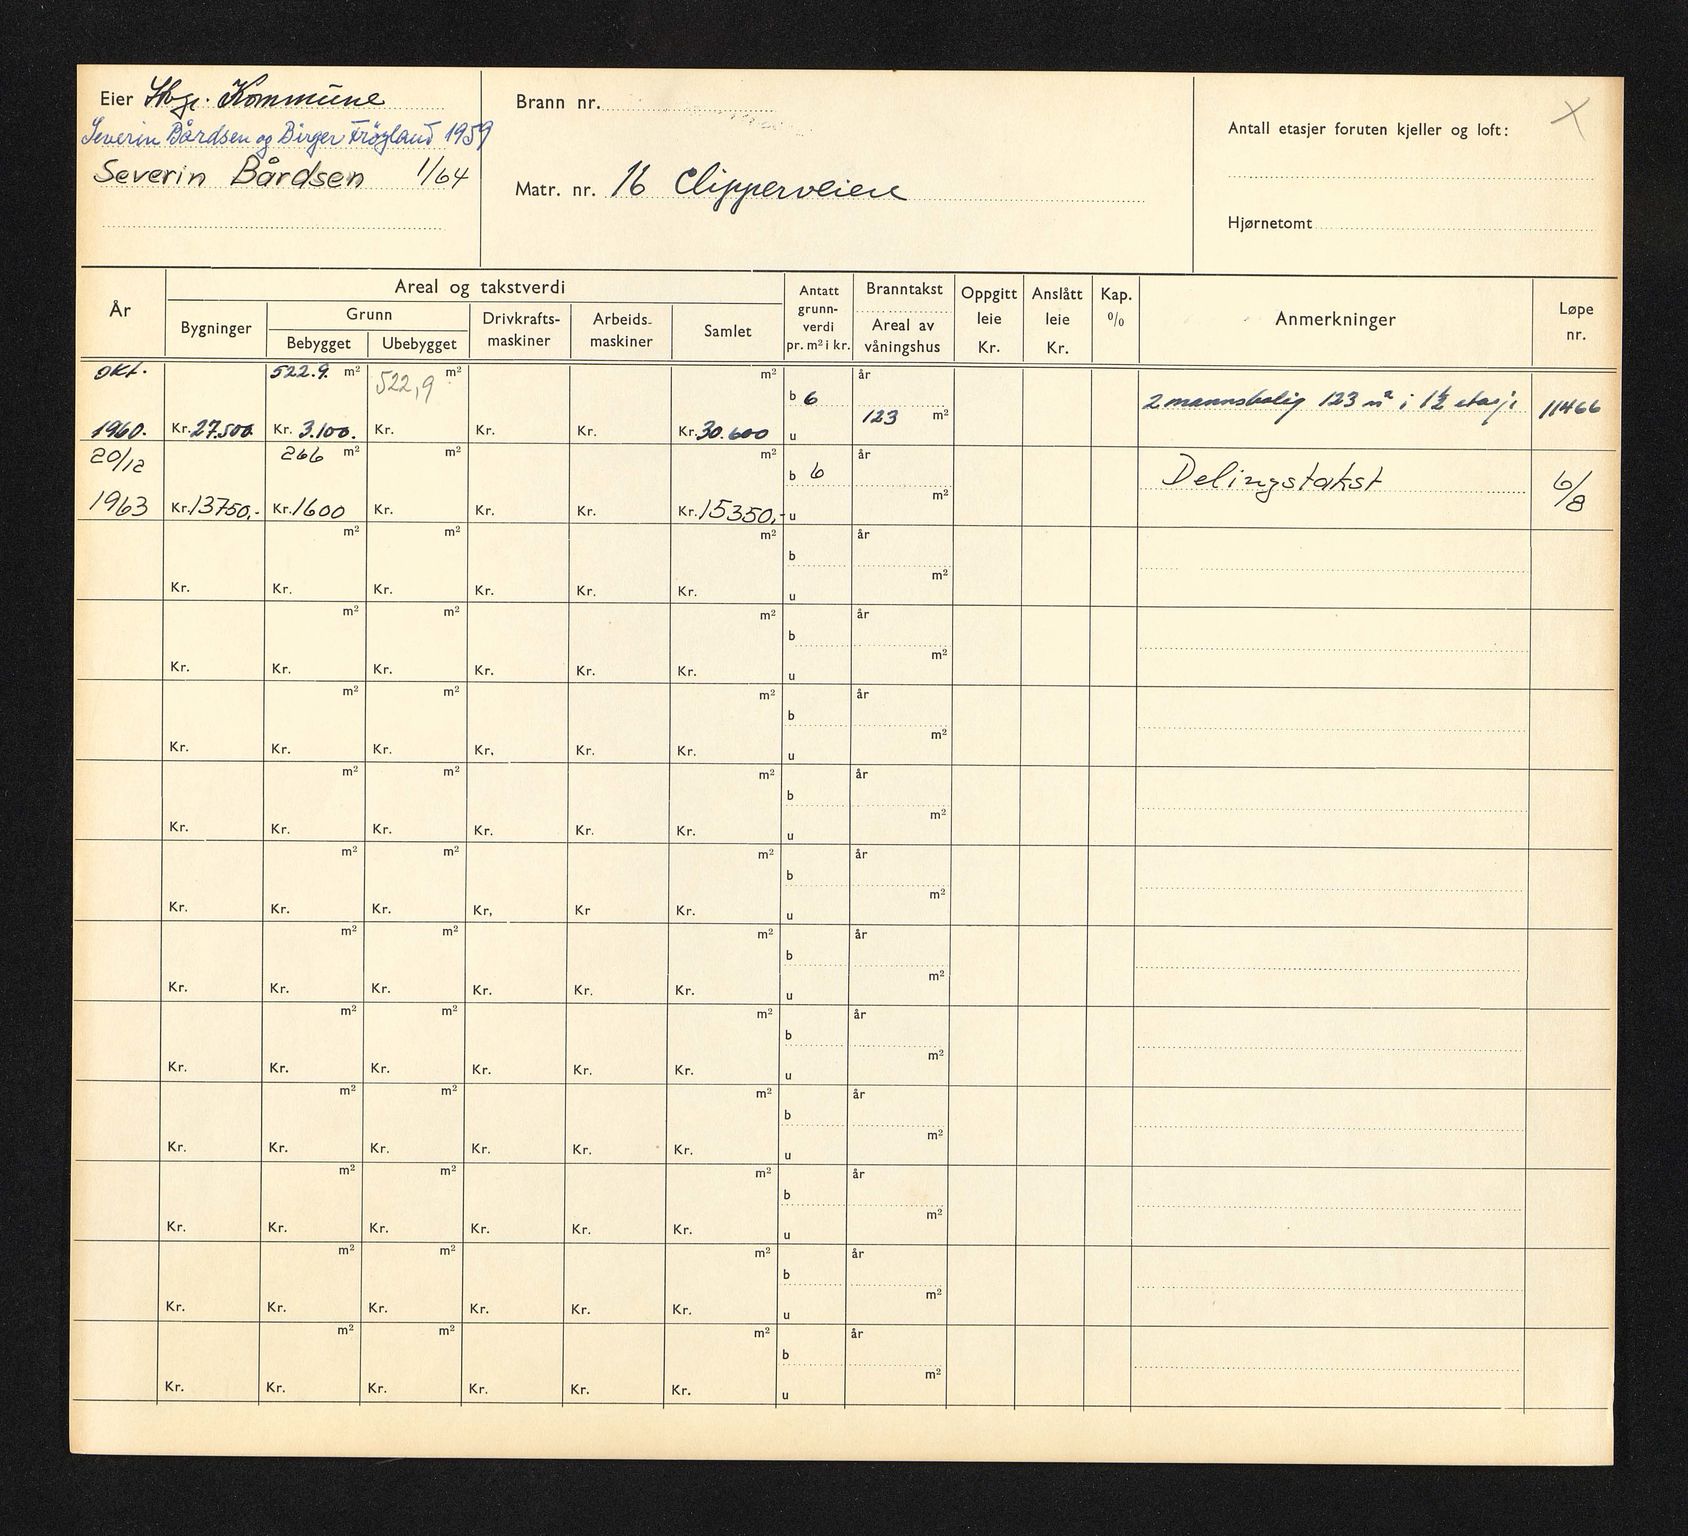 Eier Stvgr. Kommune
Severin Bårdsen og Birger Frøyland 1959
Severin Bårdsen 1/64
Brann nr.
Matr. nr. 16 Clipperveien
Antall etasjer foruten kjeller og loft:
X
Hjørnetomt
År
Areal og takstverdi
Bygninger
Grunn
Bebygget
Ubebygget
Drivkrafts-
maskiner
Arbeids-
maskiner
Samlet
Antatt
grunn-
verdi
pr. m² i kr.
Branntakst
Areal av
våningshus
Oppgitt
leie
Kr.
Anslått
leie
Kr.
Kap.
%
Anmerkninger
Løpe
nr.
okt. 522.9. m² 522,9 m² m² år
b 6 2 mannsbolig 123 m² i 1½ etasje 11466
123 m²
1960. Kr. 27.500. Kr. 3.100. Kr. Kr. Kr. Kr. 30.600 u
20/12 266 m² m² m² år
b 6 Delingstakst 6/8
m²
1963 Kr. 13750,- Kr. 1600 Kr. Kr. Kr. Kr. 15350,- u
m² m² m² år
b
m²
Kr. Kr. Kr. Kr. Kr. Kr. u
m² m² m² år
b
m²
Kr. Kr. Kr. Kr. Kr. Kr. u
m² m² m² år
b
m²
Kr. Kr. Kr. Kr. Kr. Kr. u
m² m² m² år
b
m²
Kr. Kr. Kr. Kr. Kr. Kr. u
m² m² m² år
b
m²
Kr. Kr. Kr. Kr, Kr Kr. u
m² m² m² år
b
m²
Kr. Kr. Kr. Kr. Kr. Kr. u
m² m² m² år
b
m²
Kr. Kr. Kr. Kr. Kr. Kr. u
m² m² m² år
b
m²
Kr. Kr. Kr. Kr. Kr. Kr. u
m² m² m² år
b
m²
Kr. Kr. Kr. Kr. Kr. Kr. u
m² m² m² år
b
m²
Kr. Kr. Kr. Kr. Kr. Kr. u
m² m² m² år
b
m²
Kr. Kr. Kr. Kr. Kr. Kr. u